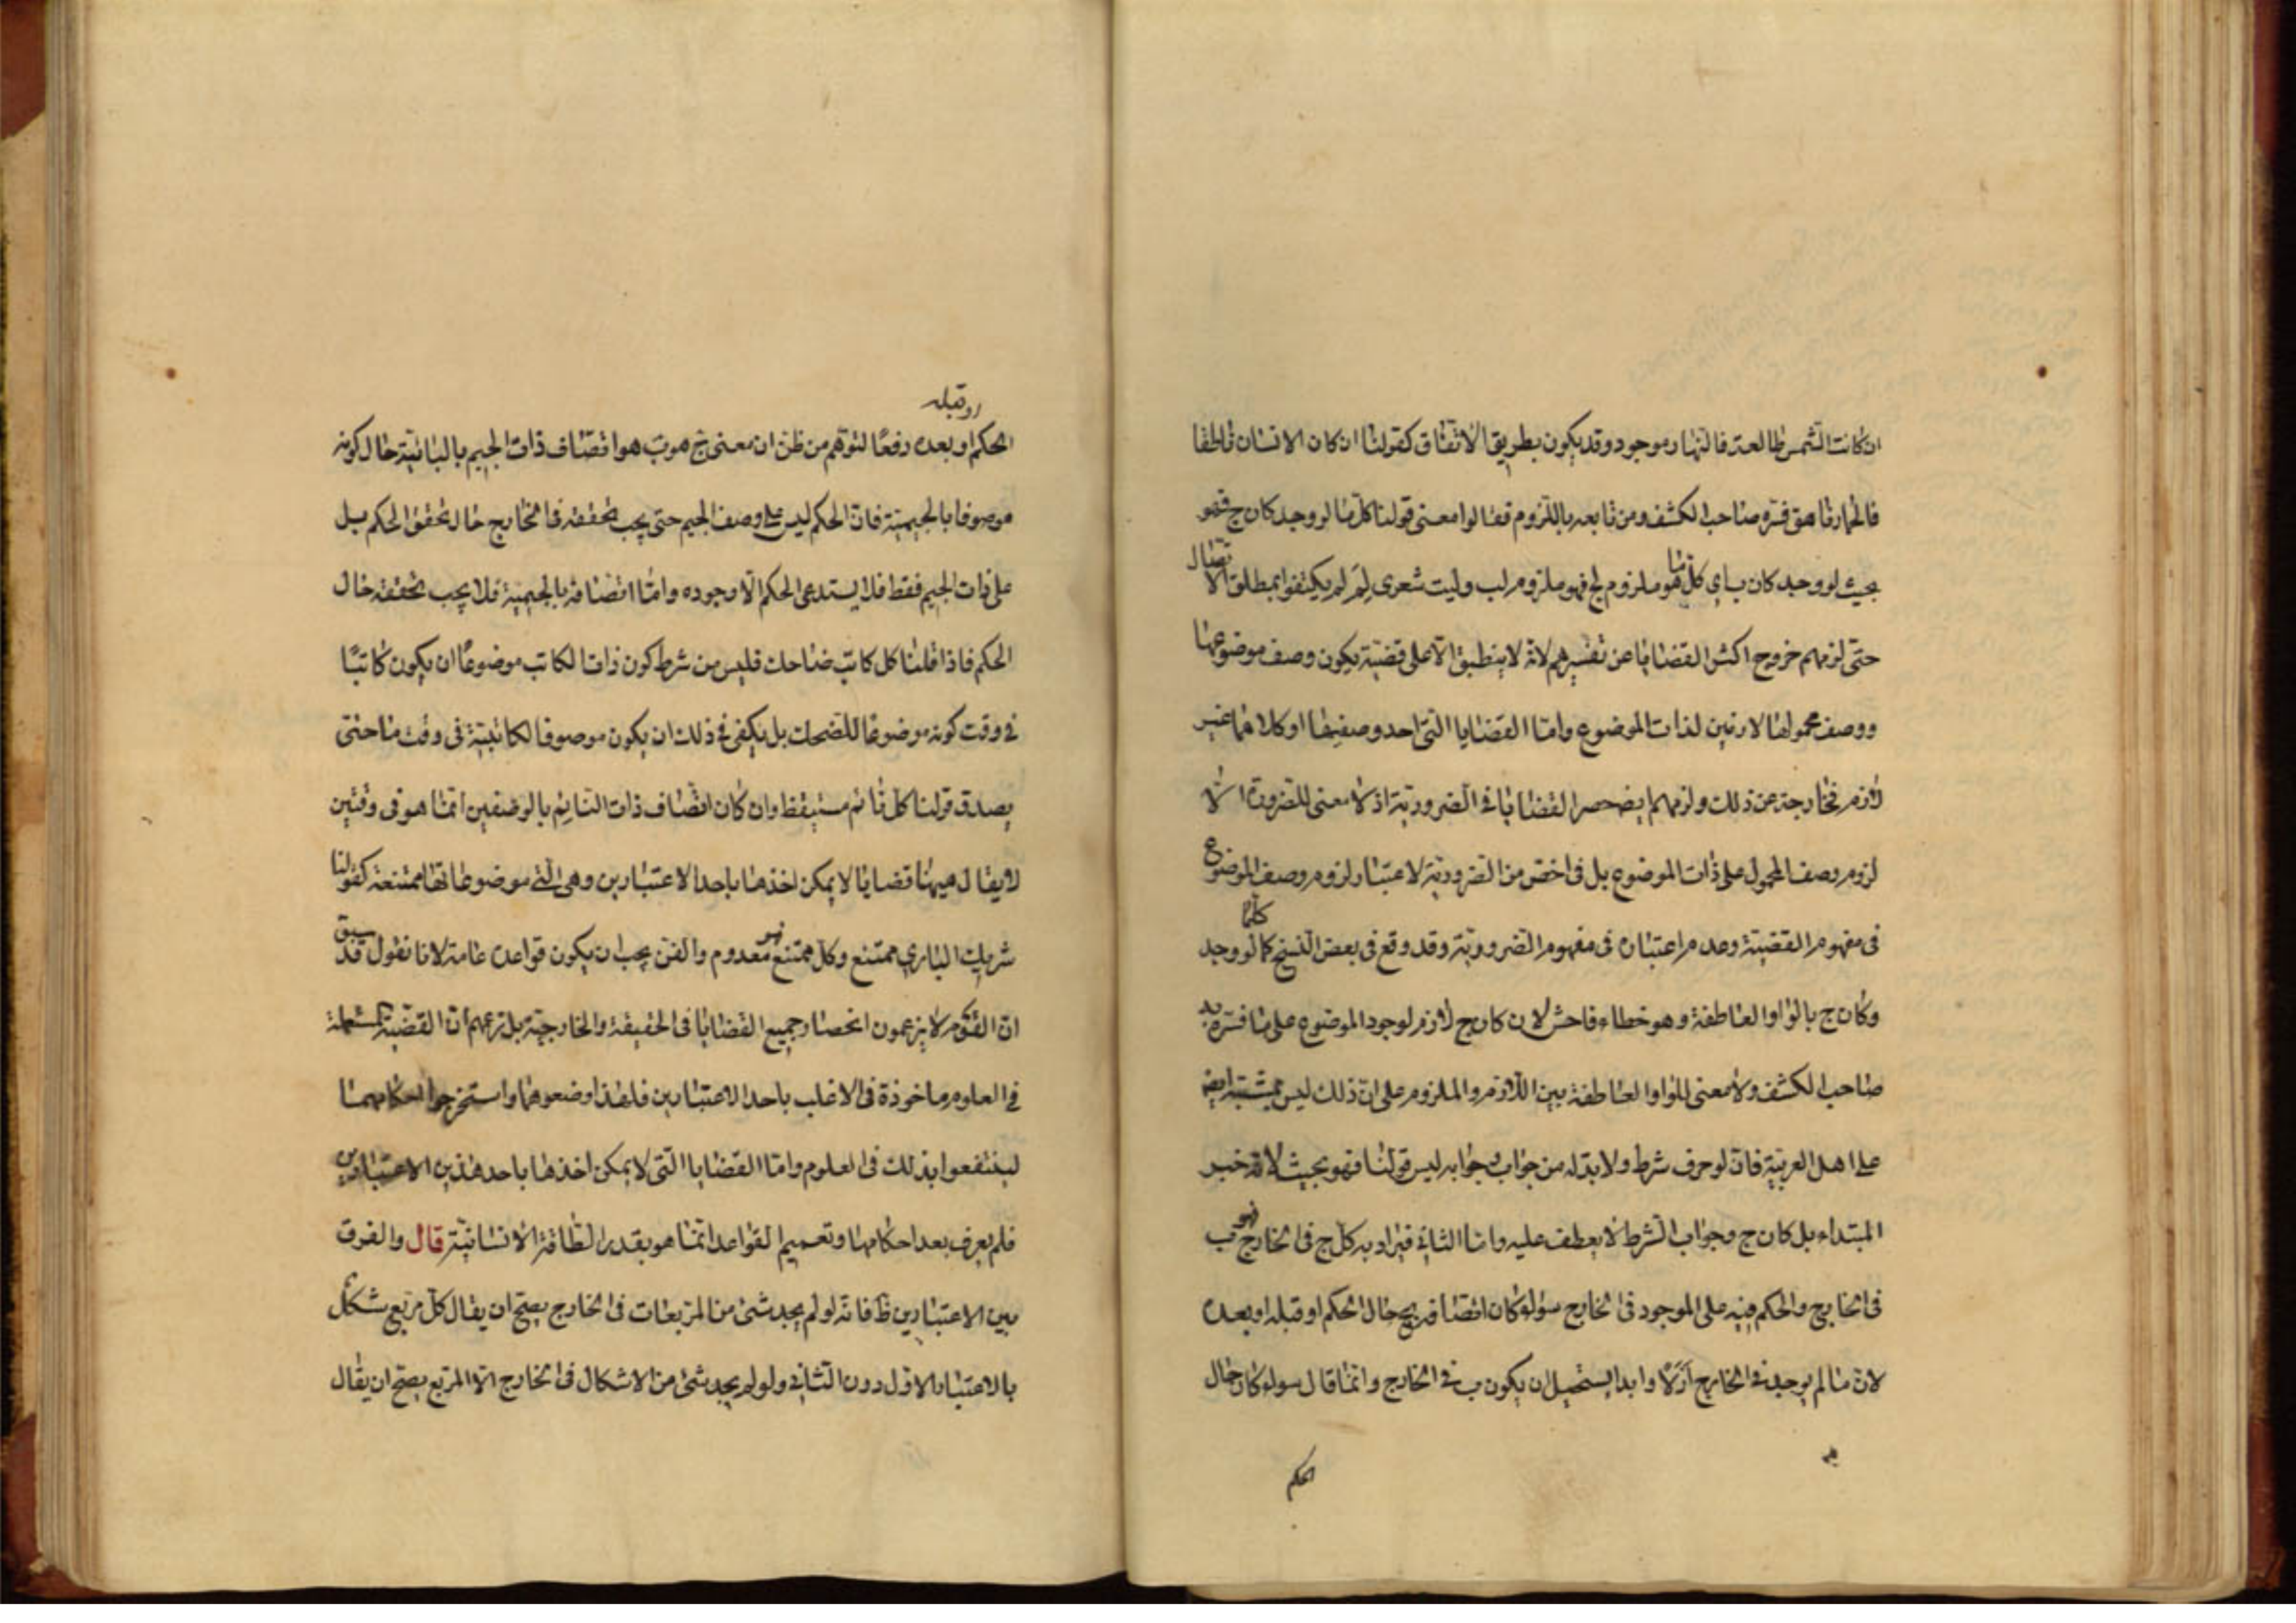 ان كانت الشمس طالعة فالنهار موجود وقد يكون بطريق الاتفاق كقولنا ان كان الانسان ناطقا
فالحمار ناهق فسره صاحب الكشف ومن تابعه باللزوم فقالوا معنى قولنا كل ما لو وجد كان ج فهو
بحيث لو وجد كان ب اي كل ما هو ملزوم لج فهو ملزوم لب وليت شعرى لِمَ لم يكتفوا بمطلق الاتصال
حتى لزمهم خروج اكثر القضايا عن تفسيرهم لانه لا ينطبق الا على قضية يكون وصف موضوعها
ووصف محمولها لازمين لذات الموضوع واما القضايا التى احد وصفيها او كلاهما غير
لازم فخارجة عن ذلك ولزمهم ايضا حصر القضايا فى الضرورية اذ لا معنى للضرورة الا
لزوم وصف المحمول على ذات الموضوع بل فى اخص من الضرورية لاعتبار لزوم وصف الموضوع
فى مفهوم القضية وعدم اعتباره فى مفهوم الضرورية وقد وقع فى بعض النسخ كلما لو وجد
وكان ج بالواو العاطفة وهو خطاء فاحش لان كان ج لازم لوجود الموضوع على ما فسره به
صاحب الكشف ولا معنى للواو العاطفة بين اللازم والملزوم على ان ذلك ليس بمشتبه ايضا
على اهل العربية فان لو حرف شرط ولا بد له من جواب وجوابه ليس قولنا فهو بحيث لانه خبر
المبتداء بل كان ج وجواب الشرط لا يعطف عليه واما الثانى فيراد به كل ج فى الخارج فهو ب
فى الخارج والحكم فيه على الموجود فى الخارج سواء كان اتصافه بج حال الحكم او قبله او بعده
لان ما لم يوجد فى الخارج ازلًا وابدا يستحيل ان يكون ب فى الخارج وانما قال سواء كان حال
الحكم
او قبله
الحكم او بعده رفعًا لتوهم من ظن ان معنى ج هو ب هو اتصاف ذات الجيم بالبائية حال كونه
موصوفا بالجيمية فان الحكم ليس على وصف الجيم حتى يجب تحققه فى الخارج حال تحقق الحكم بل
على ذات الجيم فقط فلا يستدعى الحكم الا وجوده واما اتصافه بالجيمية فلا يجب تحققه حال
الحكم فاذا قلنا كل كاتب ضاحك فليس من شرط كون ذات الكاتب موضوعًا ان يكون كاتبًا
فى وقت كونه موضوعا للضحك بل يكفى فى ذلك ان يكون موصوفا لكاتبية فى وقت ما حتى
يصدق قولنا كل نائم مستيقظ وان كان اتصاف ذات النائم بالوصفين انما هو فى وقتين
لا يقال ههنا قضايا لا يمكن اخذها باحد الاعتبارين وهى التى موضوعاتها ممتنعة كقولنا
شريك البارى ممتنع وكل ممتنع فهو معدوم والفن يجب ان يكون قواعده عامة لانا نقول قد سبق
ان القوم لا يزعمون انحصار جميع القضايا فى الحقيقة والخارجية بل زعمهم ان القضية المستعملة
فى العلوم ماخوذة فى الاغلب باحد الاعتبارين فلهذا وضعوهما واستخرجوا احكامهما
لينتفعوا بذلك فى العلوم واما القضايا التى لا يمكن اخذها باحد هذين الاعتبارين
فلم يعرف بعد احكامها وتعميم القواعد انما هو بقدر الطاقة الانسانية قال والفرق
بين الاعتبارين ظ فانه لو لم يوجد شئ من المربعات فى الخارج يصح ان يقال كل مربع شكل
بالاعتبار الاول دون الثانى ولو لم يوجد شئ من الاشكال فى الخارج الا المربع يصح ان يقال